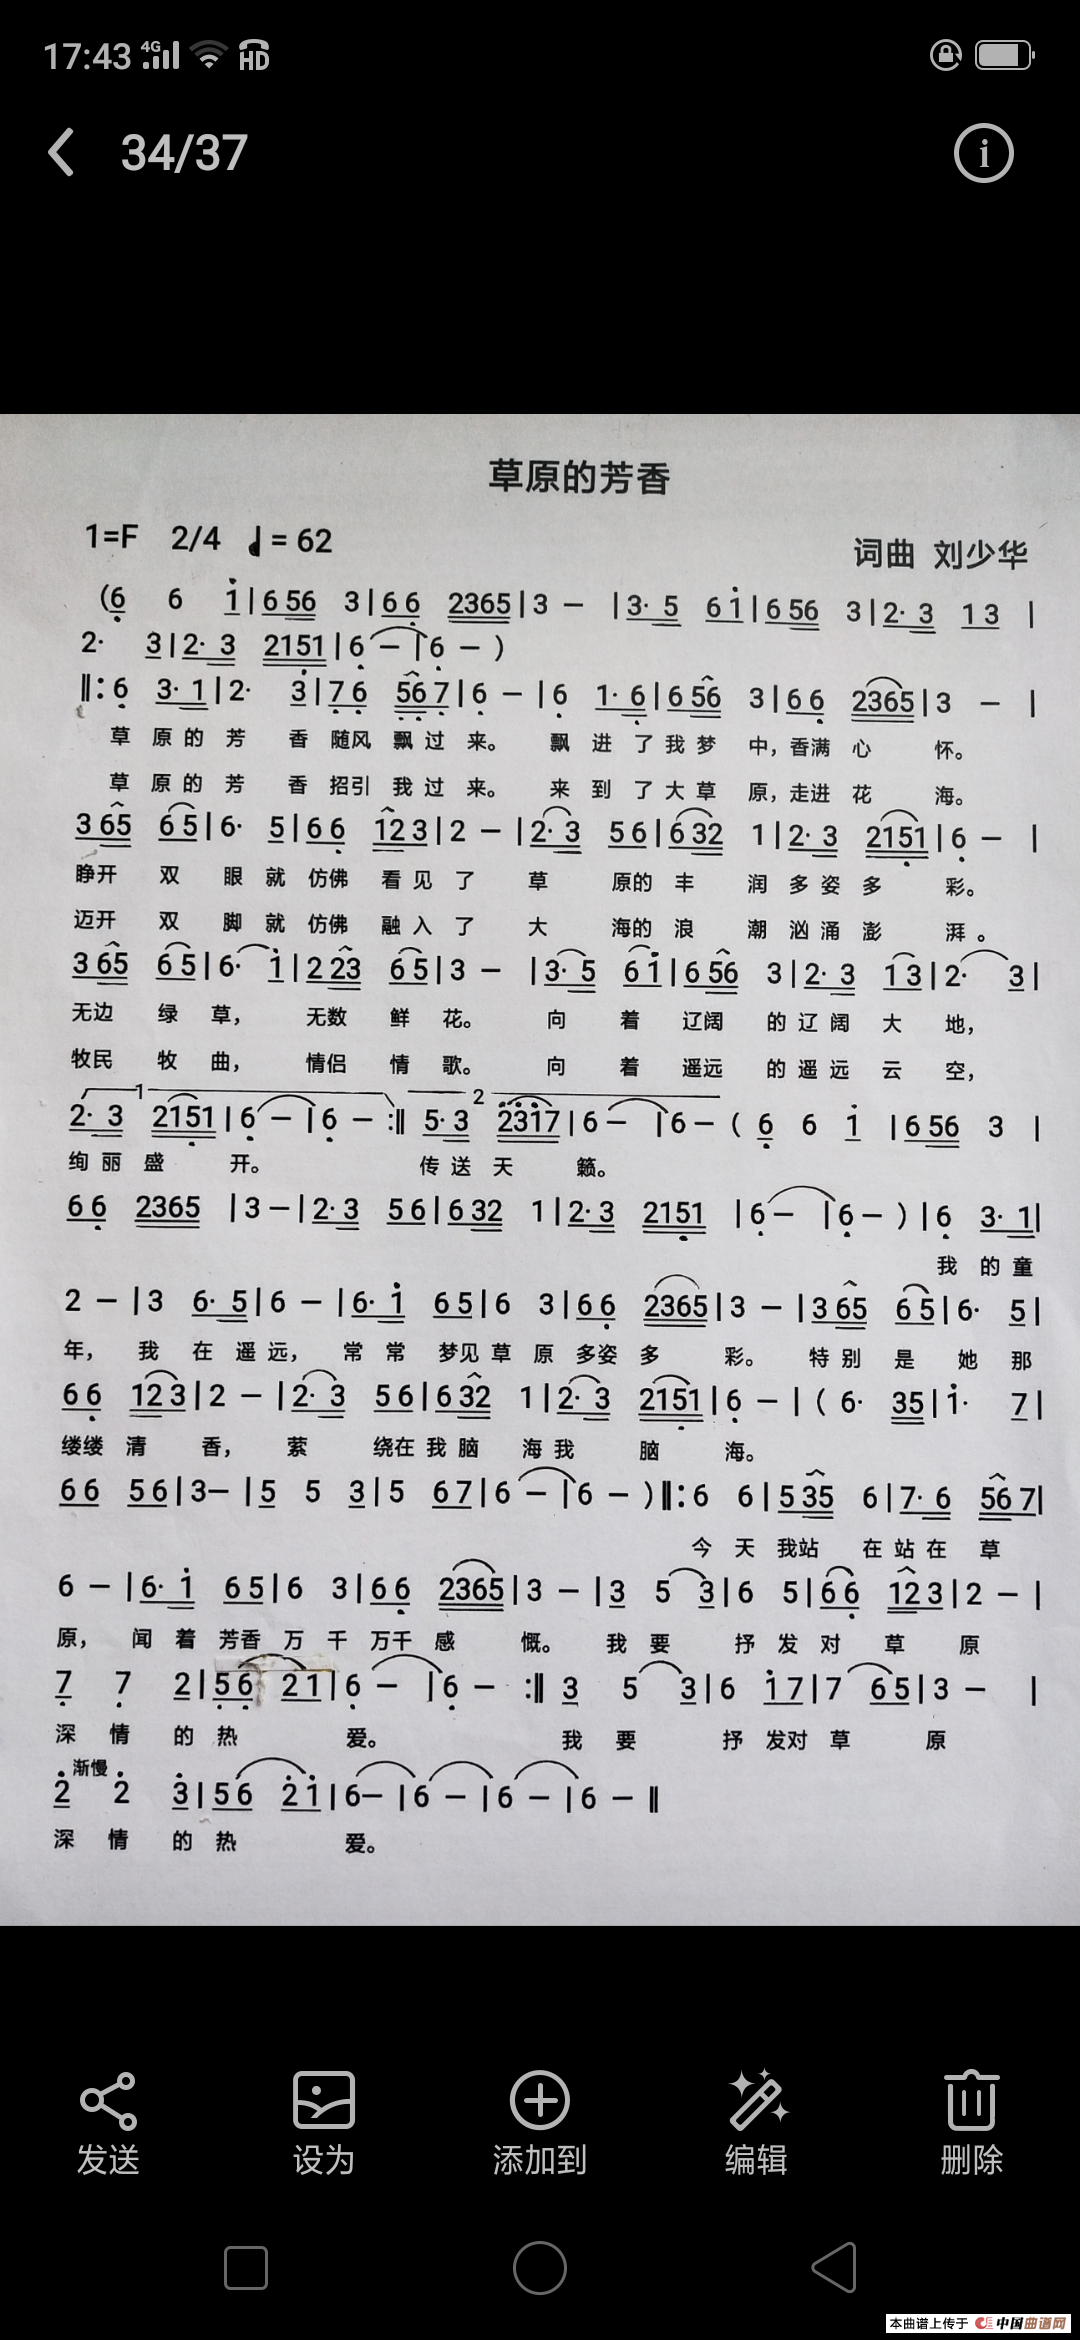 17:43 4G HD
34/37
草原的芳香
1=F 2/4 ♩= 62
词曲 刘少华
(6 6 1|6 56 3|6 6 2365|3 — |3· 5 6 1|6 56 3|2· 3 1 3 |
2· 3|2· 3 2151|6 — |6 — )
‖:6 3· 1|2· 3|7 6 56 7|6 — |6 1· 6|6 56 3|6 6 2365|3 — |
草 原 的 芳 香 随风 飘 过 来。 飘 进 了 我 梦 中，香满 心 怀。
草 原 的 芳 香 招引 我 过 来。 来 到 了 大 草 原，走进 花 海。
3 65 6 5|6· 5|6 6 12 3|2 — |2· 3 5 6|6 32 1|2· 3 2151|6 — |
睁开 双 眼 就 仿佛 看 见 了 草 原的 丰 润 多 姿 多 彩。
迈开 双 脚 就 仿佛 融 入 了 大 海的 浪 潮 汹 涌 澎 湃。
3 65 6 5|6· 1|2 23 6 5|3 — |3· 5 6 1|6 56 3|2· 3 1 3|2· 3|
无边 绿 草， 无数 鲜 花。 向 着 辽阔 的 辽 阔 大 地，
牧民 牧 曲， 情侣 情 歌。 向 着 遥远 的 遥 远 云 空，
1 2
2· 3 2151|6 — |6 — :‖ 5· 3 2317|6 — |6 — ( 6 6 1 |6 56 3 |
绚 丽 盛 开。 传 送 天 籁。
6 6 2365 |3 —|2· 3 5 6|6 32 1|2· 3 2151 |6 — |6 — ) |6 3· 1|
我 的 童
2 — |3 6· 5|6 — |6· 1 6 5|6 3|6 6 2365|3 — |3 65 6 5|6· 5|
年， 我 在 遥 远， 常 常 梦见 草 原 多姿 多 彩。 特 别 是 她 那
6 6 12 3|2 — |2· 3 5 6|6 32 1|2· 3 2151|6 — |( 6· 35|1· 7|
缕缕 清 香， 萦 绕在 我 脑 海 我 脑 海。
6 6 5 6|3— |5 5 3|5 6 7|6 — |6 — )‖:6 6|5 35 6|7· 6 56 7|
今 天 我站 在 站 在 草
6 — |6· 1 6 5|6 3|6 6 2365|3 — |3 5 3|6 5|6 6 12 3|2 — |
原， 闻 着 芳香 万 千 万千 感 慨。 我 要 抒 发 对 草 原
7 7 2|5 6 2 1|6 — |6 — :‖ 3 5 3|6 1 7|7 6 5|3 — |
深 情 的 热 爱。 我 要 抒 发对 草 原
渐慢
2 2 3|5 6 2 1|6— |6 — |6 — |6 — ‖
深 情 的 热 爱。
发送 设为 添加到 编辑 删除
本曲谱上传于 中国曲谱网